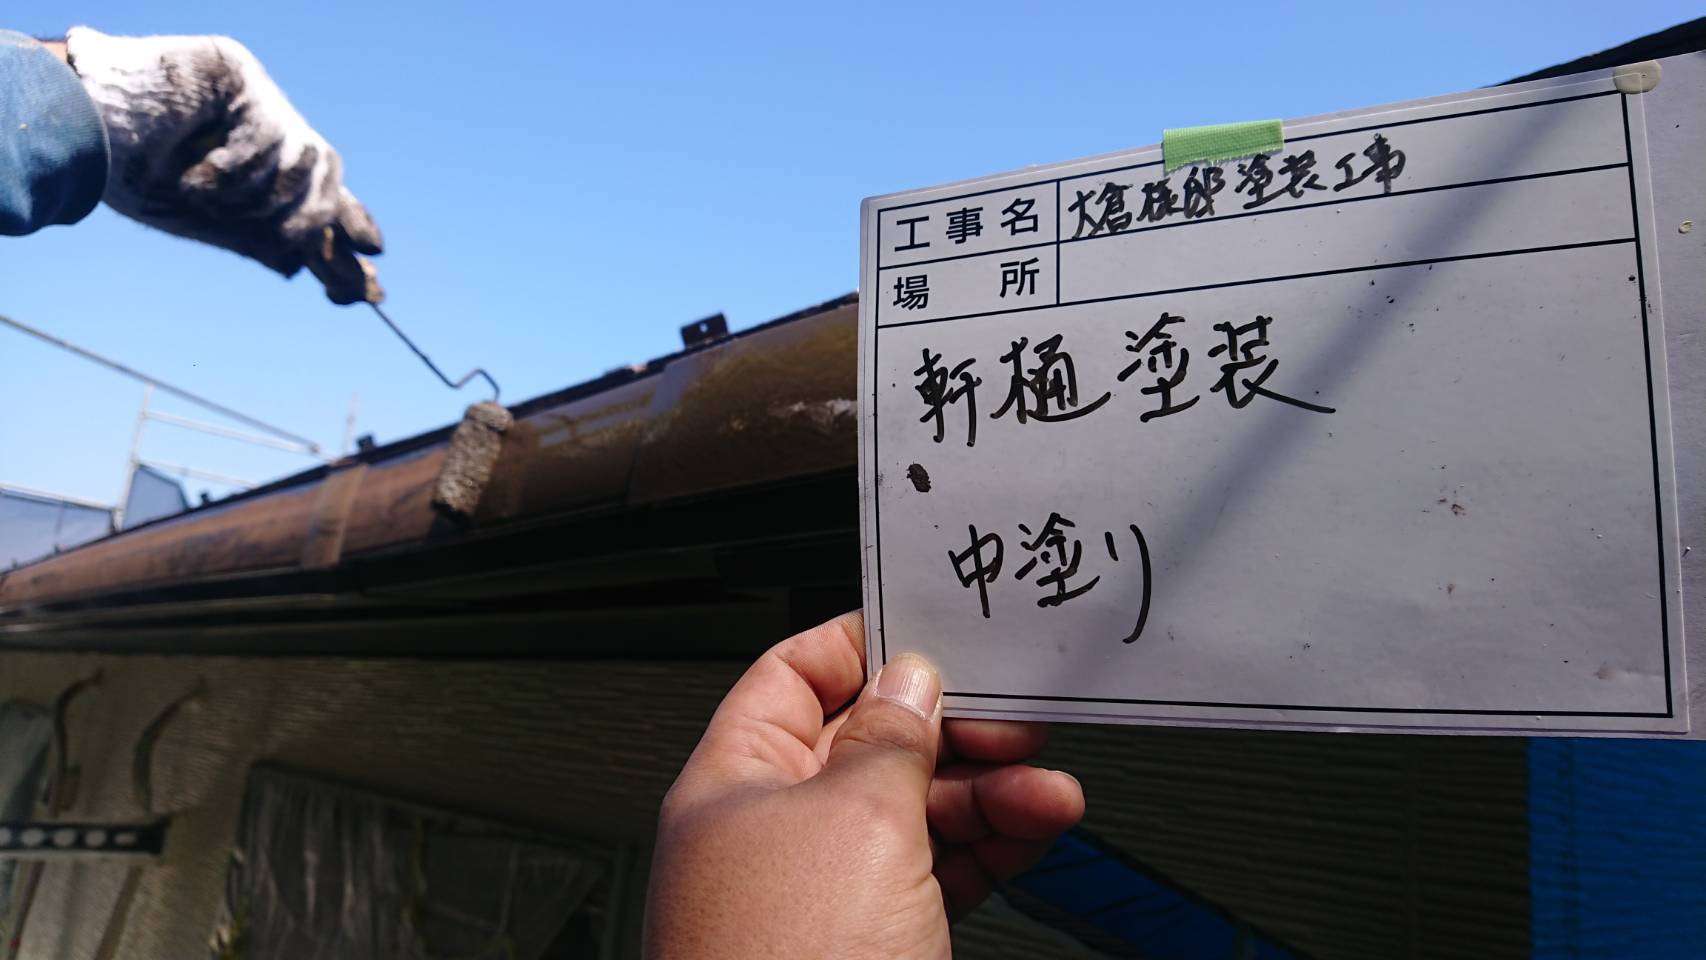 工事名 大倉様邸塗装工事
場所
軒樋塗装
中塗り